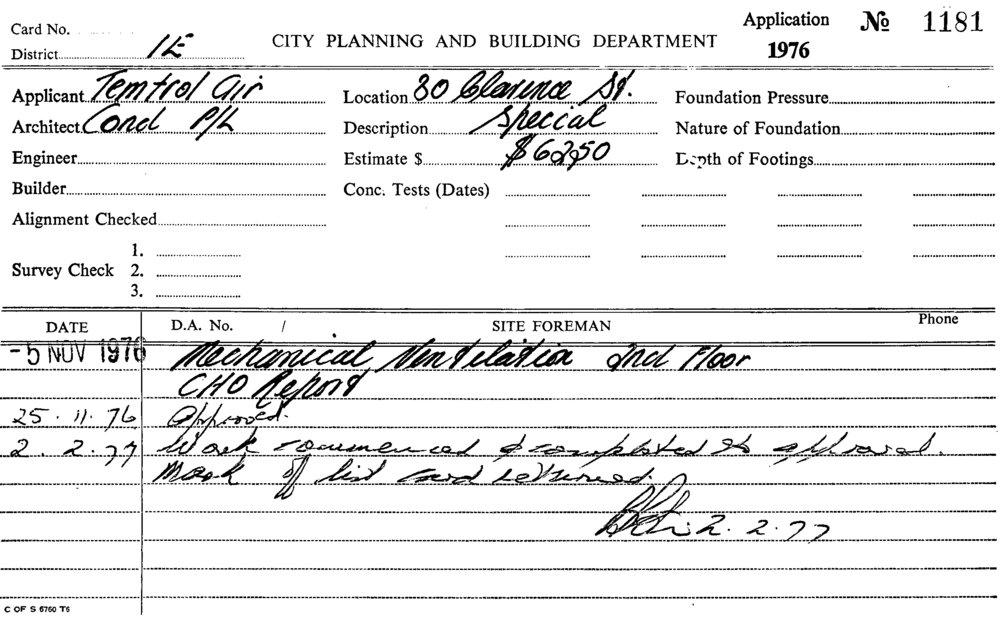 Card No.
Application № 1181
1976
District 1E
CITY PLANNING AND BUILDING DEPARTMENT
Applicant Temtrol Air
Location 30 Clarence St.
Foundation Pressure
Architect Cond P/L
Description Special
Nature of Foundation
Engineer
Estimate $ $6250
Depth of Footings
Builder
Conc. Tests (Dates)
Alignment Checked
Survey Check 1.
2.
3.
DATE D.A. No. / SITE FOREMAN Phone
-5 NOV 1976 Mechanical Ventilation 2nd Floor
CHO Report
25.11.76 Approved.
2.2.77 Work commenced & completed to approval.
Mark off list card returned.
2.2.77
C OF S 6760 T6